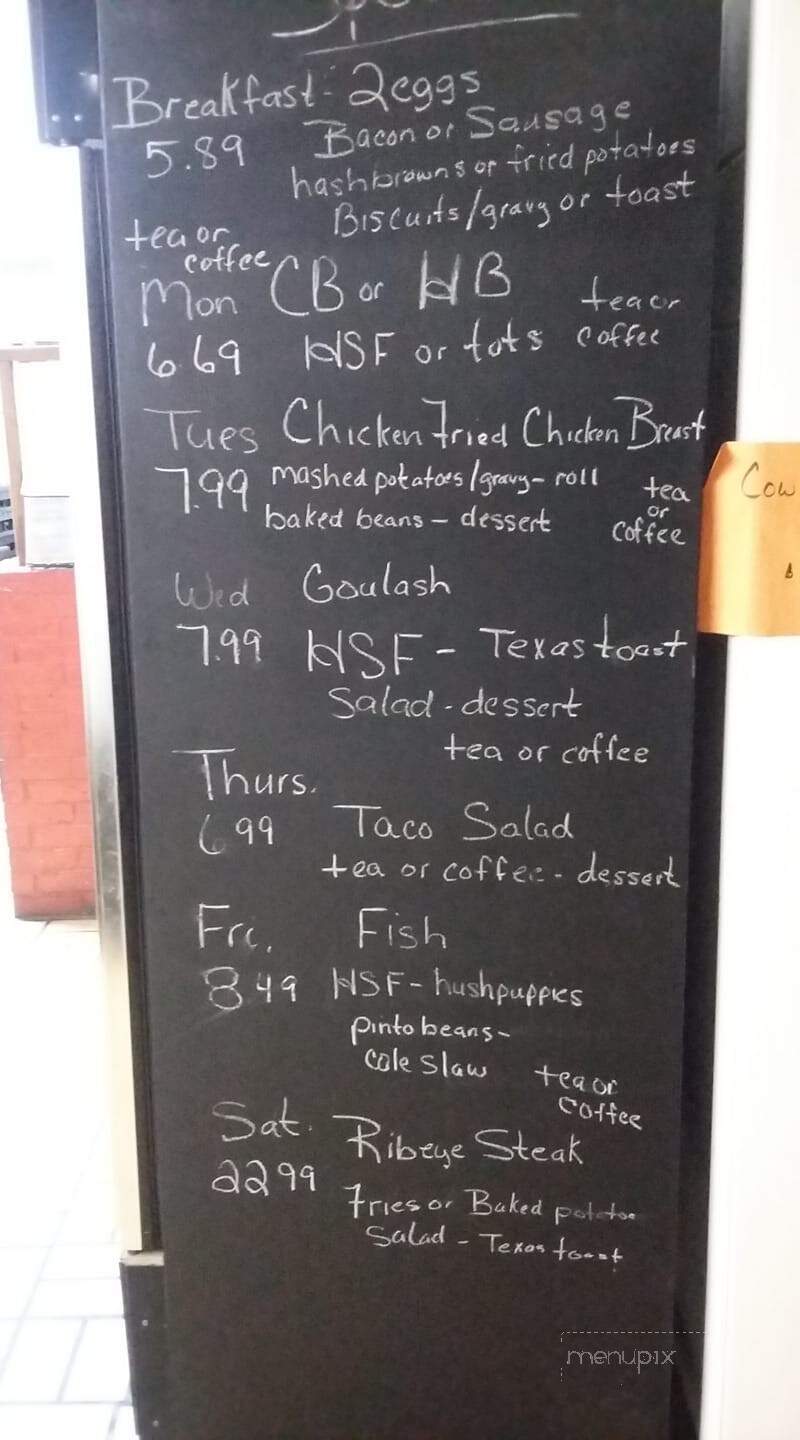 Breakfast - 2 eggs
5.89 Bacon or Sausage
hashbrowns or fried potatoes
Biscuits/gravy or toast
tea or
coffee
Mon CB or HB tea or
6.69 HSF or tots coffee
Tues Chicken Fried Chicken Breast
7.99 mashed potatoes/gravy - roll tea
or
baked beans - dessert coffee
Wed Goulash
7.99 HSF - Texas toast
Salad - dessert
tea or coffee
Thurs.
6 99 Taco Salad
tea or coffee - dessert
Fri. Fish
8 49 HSF - hushpuppies
pinto beans -
cole slaw tea or
coffee
Sat. Ribeye Steak
22 99
Fries or Baked potatoe
Salad - Texas toast
Cow
menupix